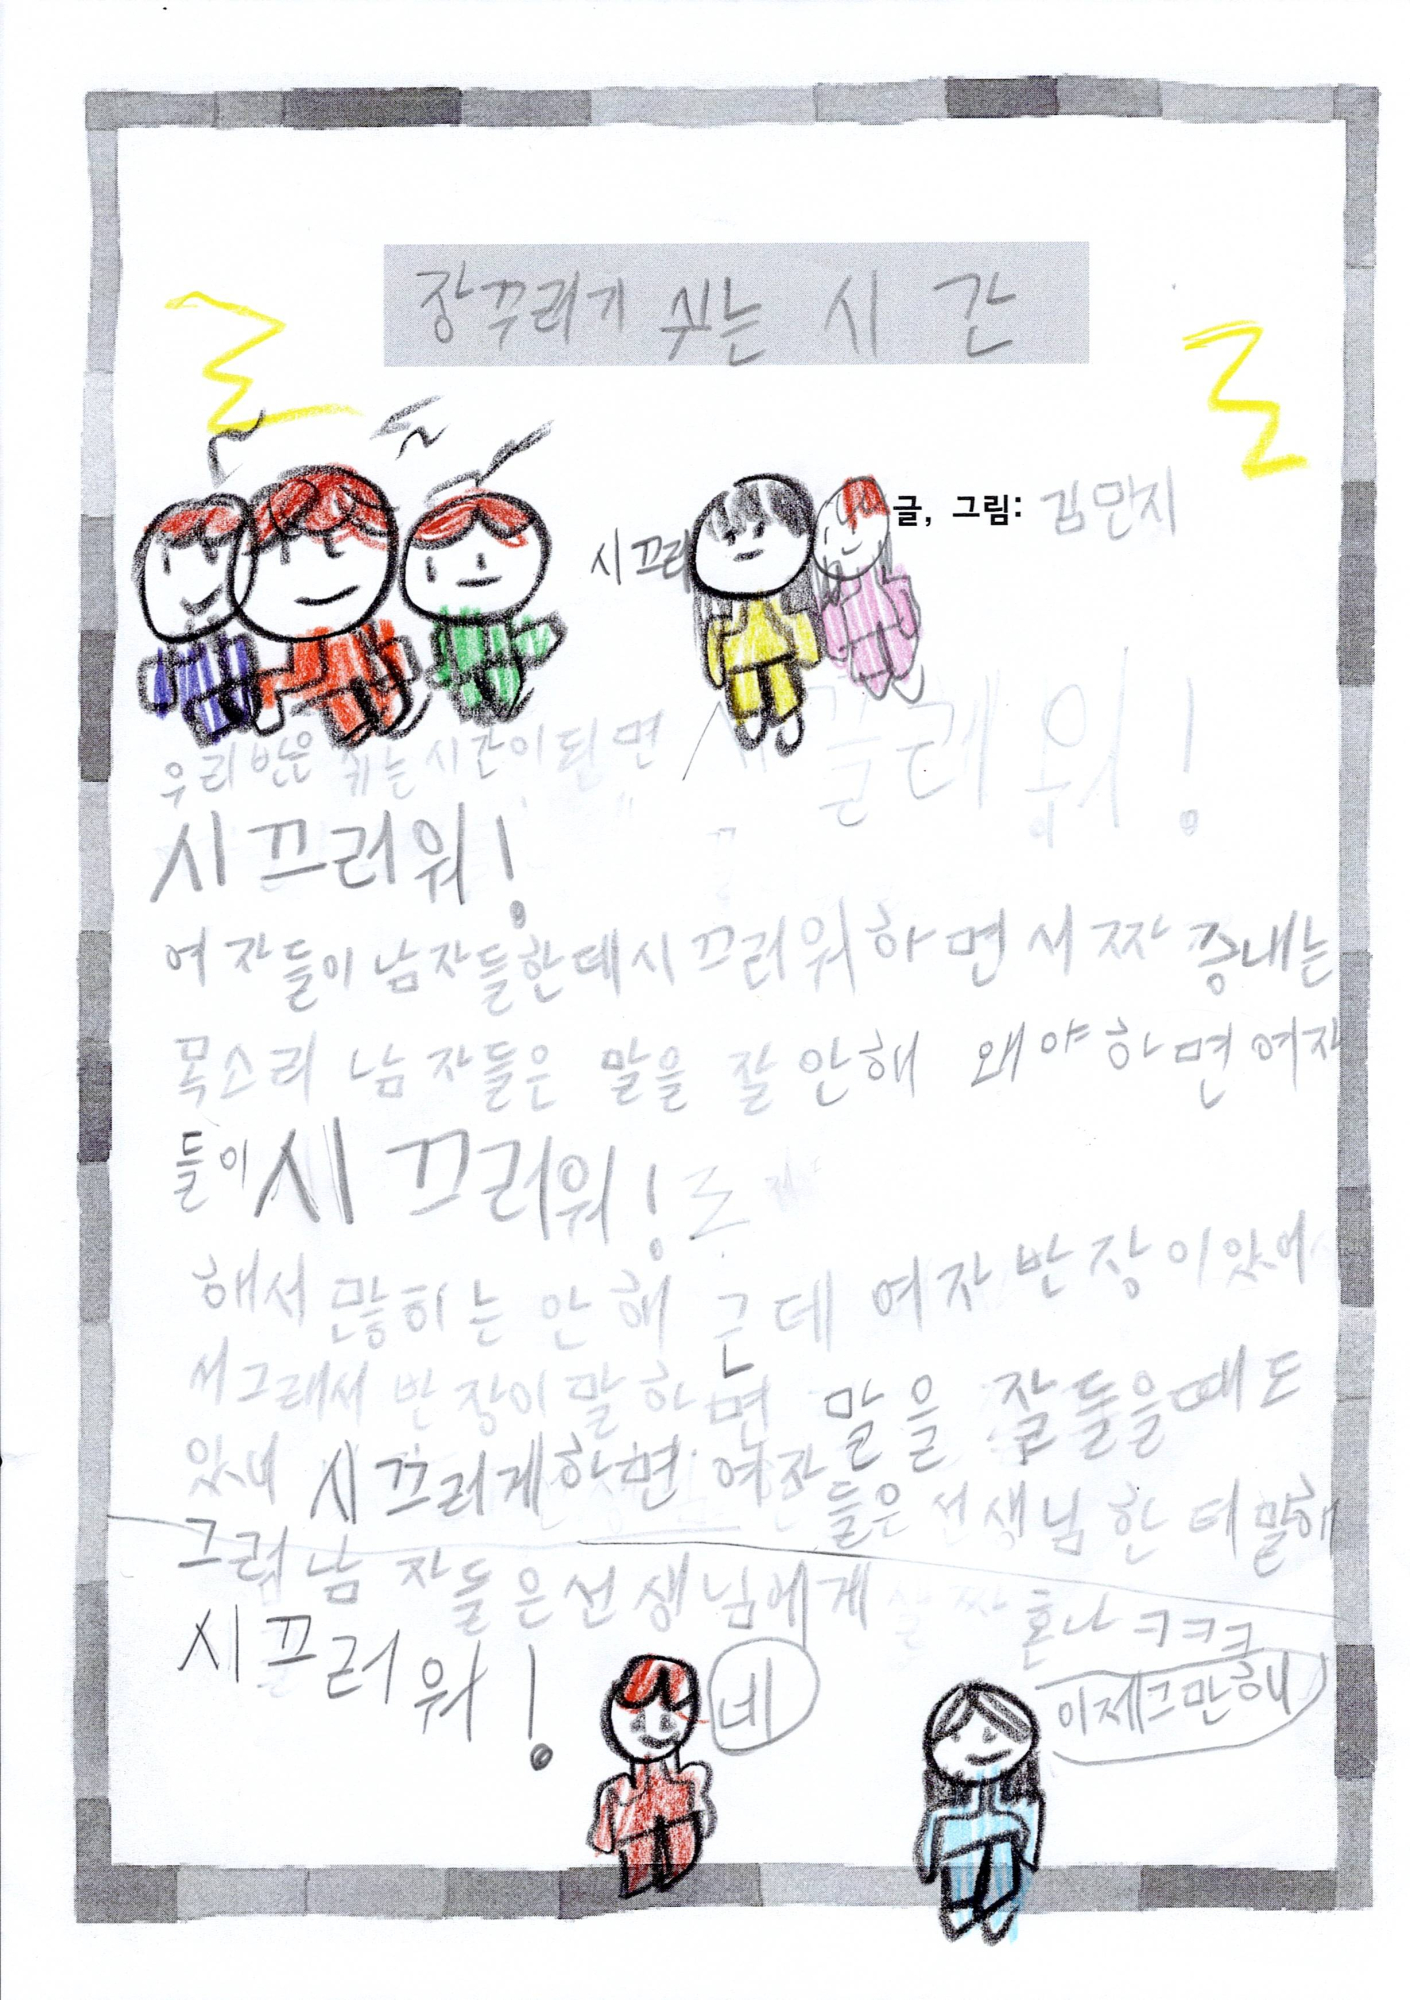 장꾸러기 쉬는 시간
글, 그림: 김민지
시끄러
우리 반은 쉬는 시간이 되면
시끄러워!
여자들이 남자들한데 시끄러워 하면서 짜증내는
목소리 남자들은 말을 잘 안해 왜야하면 여자
들이 시끄러워!
해서 많히는 안해 근데 여자 반장이 있어
서 그래서 반장이 말하면 말을 잘 들을때도
있너 시끄러게하면 여자들은 선생님한터 말해
그럼 남자들은 선생님에게 살짝 혼나 ㅋㅋㅋ
시끄러워!
네
이제그만해